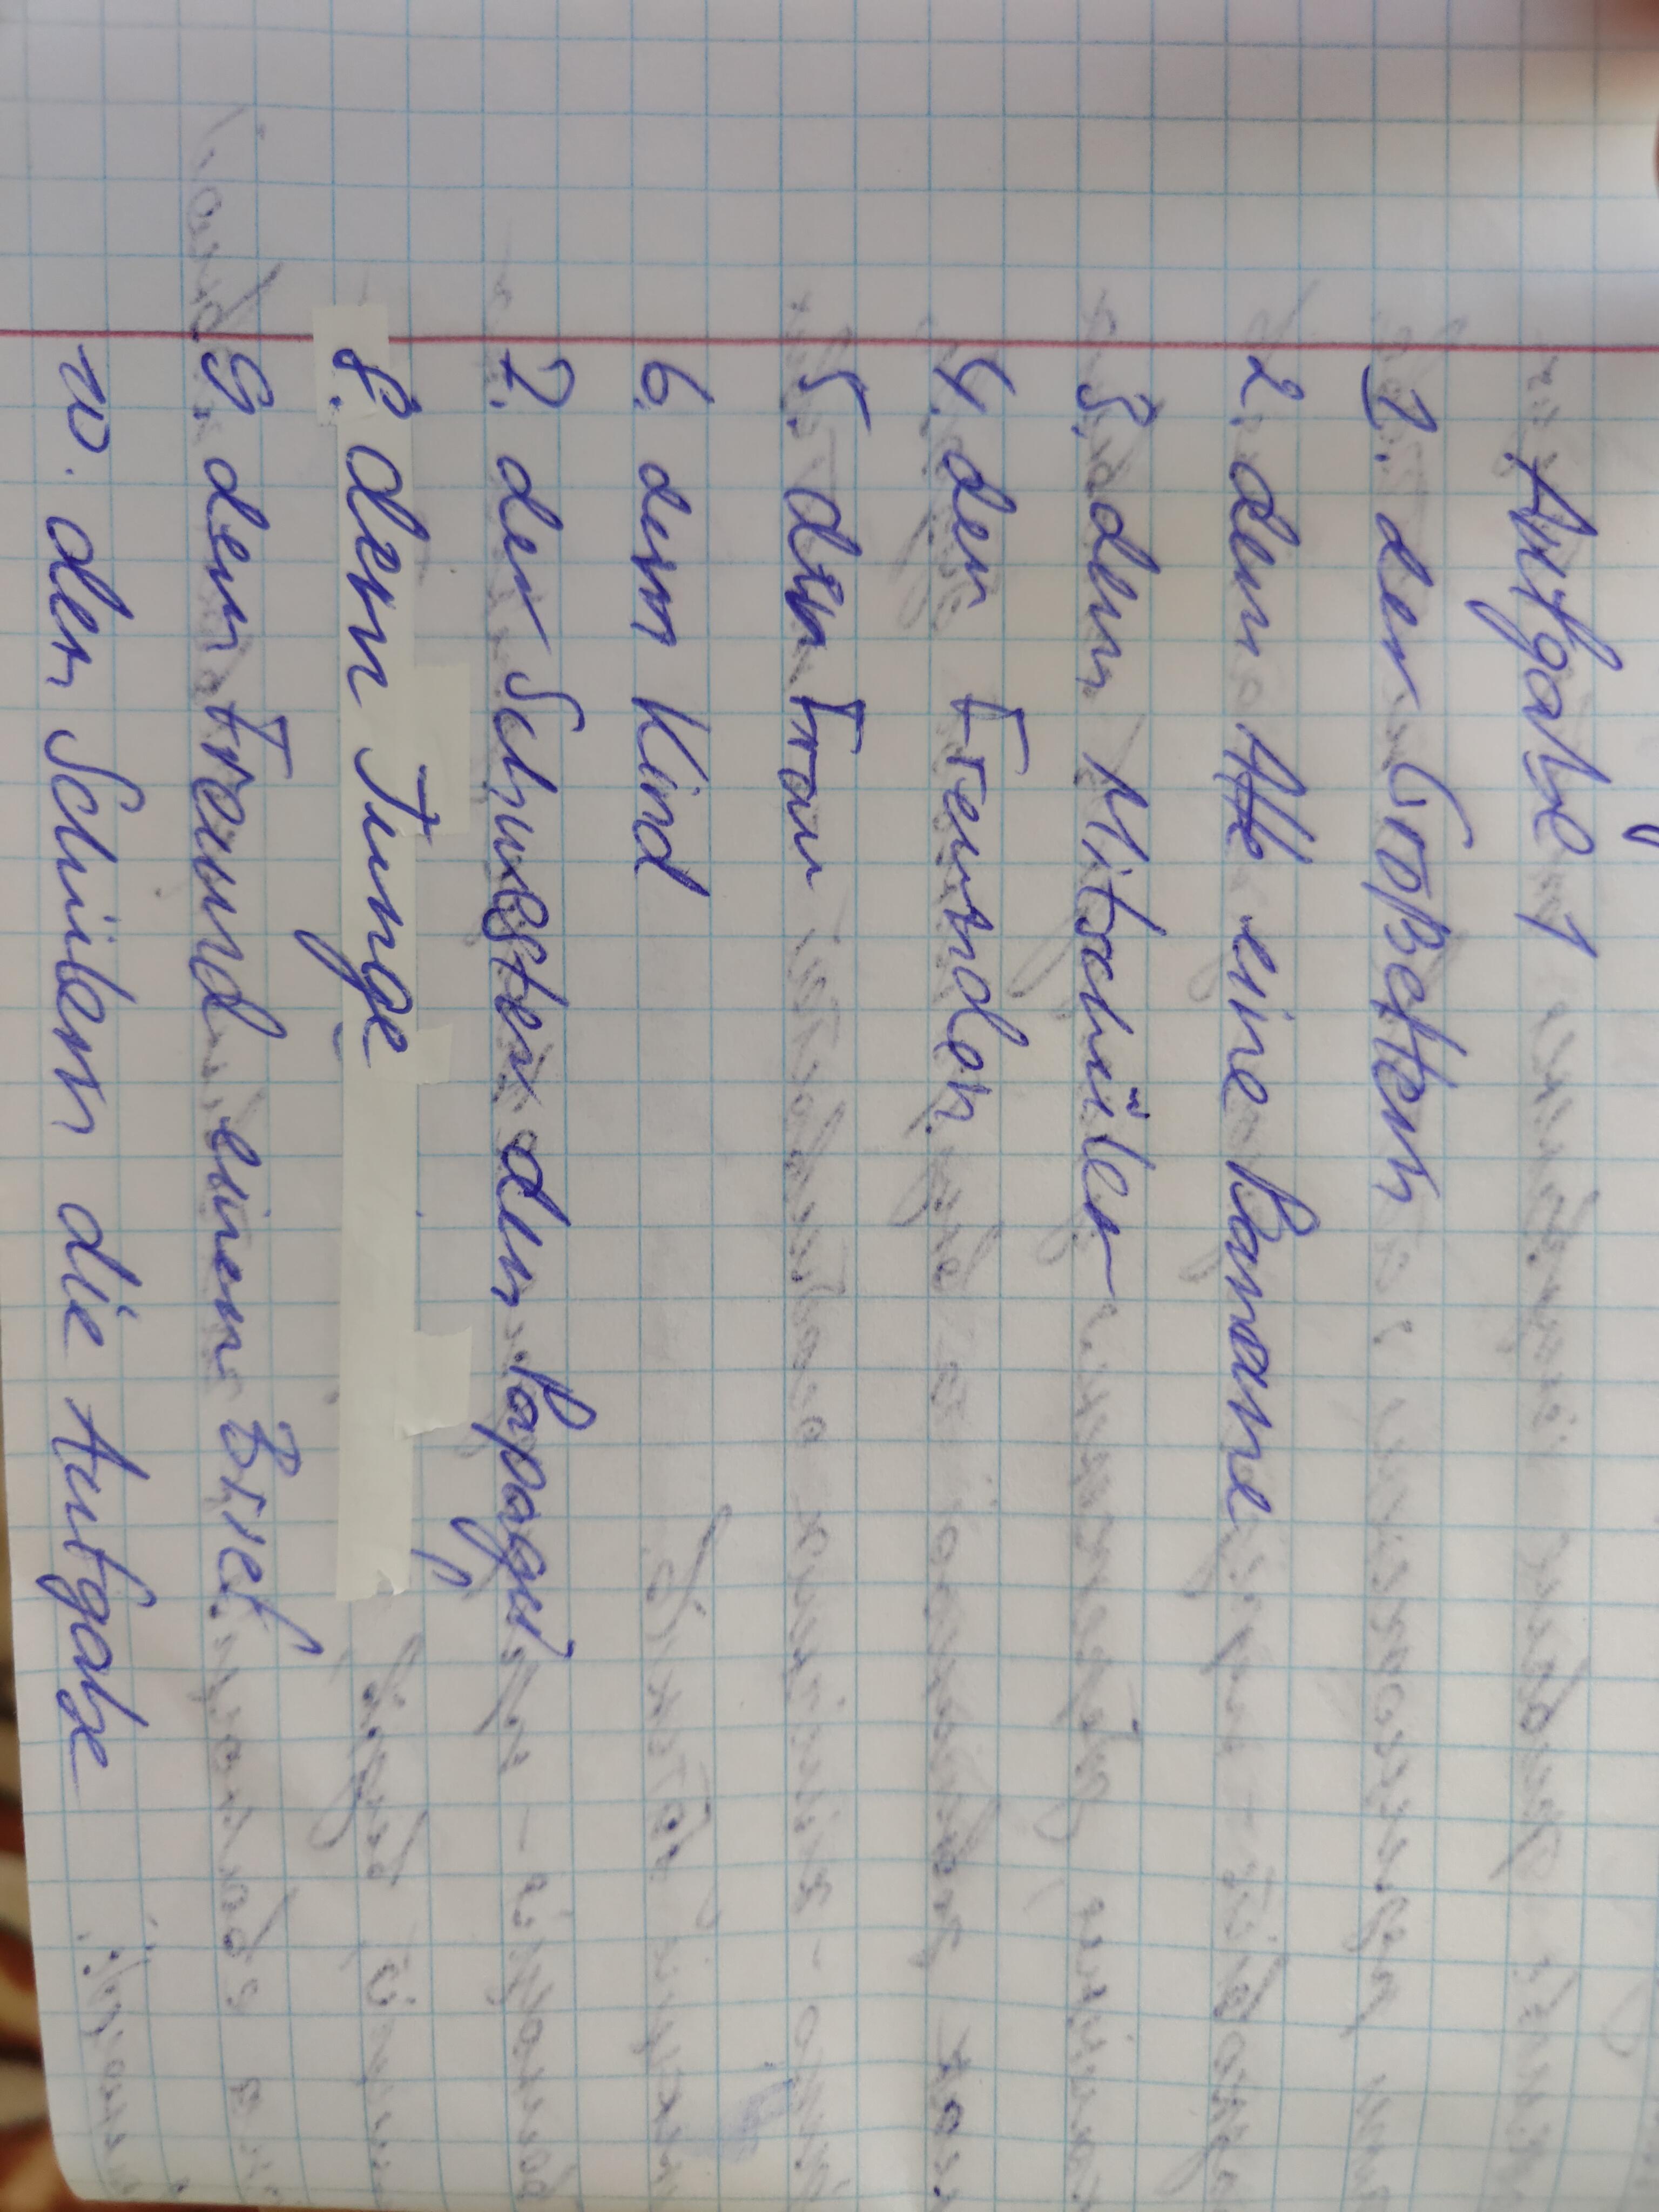 Aufgabe 1
1. den Großeltern
2. dem Affe eine Banane
3. dem Mitschüler
4. den Freunden
5. der Frau
6. dem Kind
7. der Schwester den Papagei
8. dem Junge
9. dem Freund einen Brief
10. den Schülern die Aufgabe